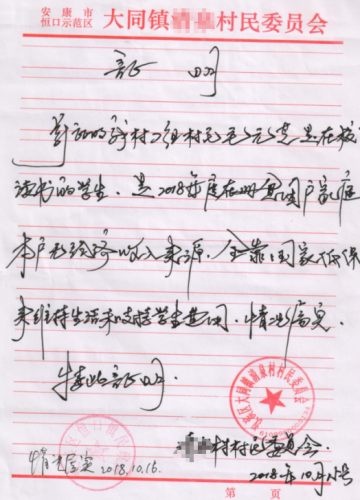 安康市
恒口示范区 大同镇 村民委员会
证明
村2组村民 是在校
读书的学生,是2018年度在册贫困户家庭
本户无经济收入来源,全靠国家低保
来维持生活和支持学生费用,情况属实
特此证明
村村民委员会
情况属实 2018.10.16. 2018年10月15号
第 页